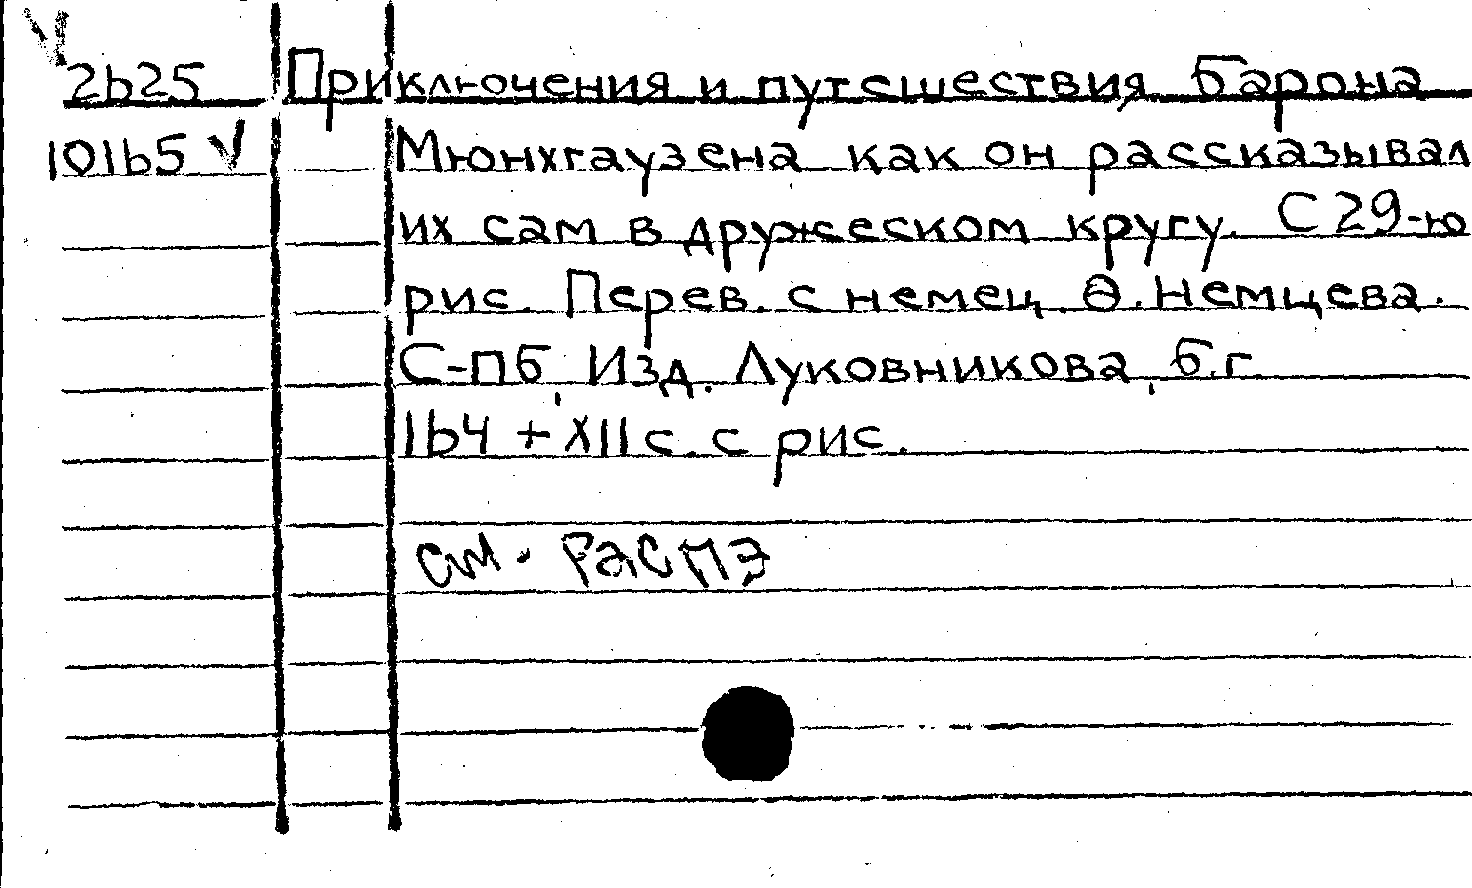 V
2625 Приключения и путешествия барона
10165 V Мюнхгаузена как он рассказывал
их сам в дружеском кругу. С 29-ю
рис. Перев. с немец. Ѳ. Немцева.
С-Пб, Изд. Луковникова, б.г.
164 + XII с. с рис.
см. Распэ